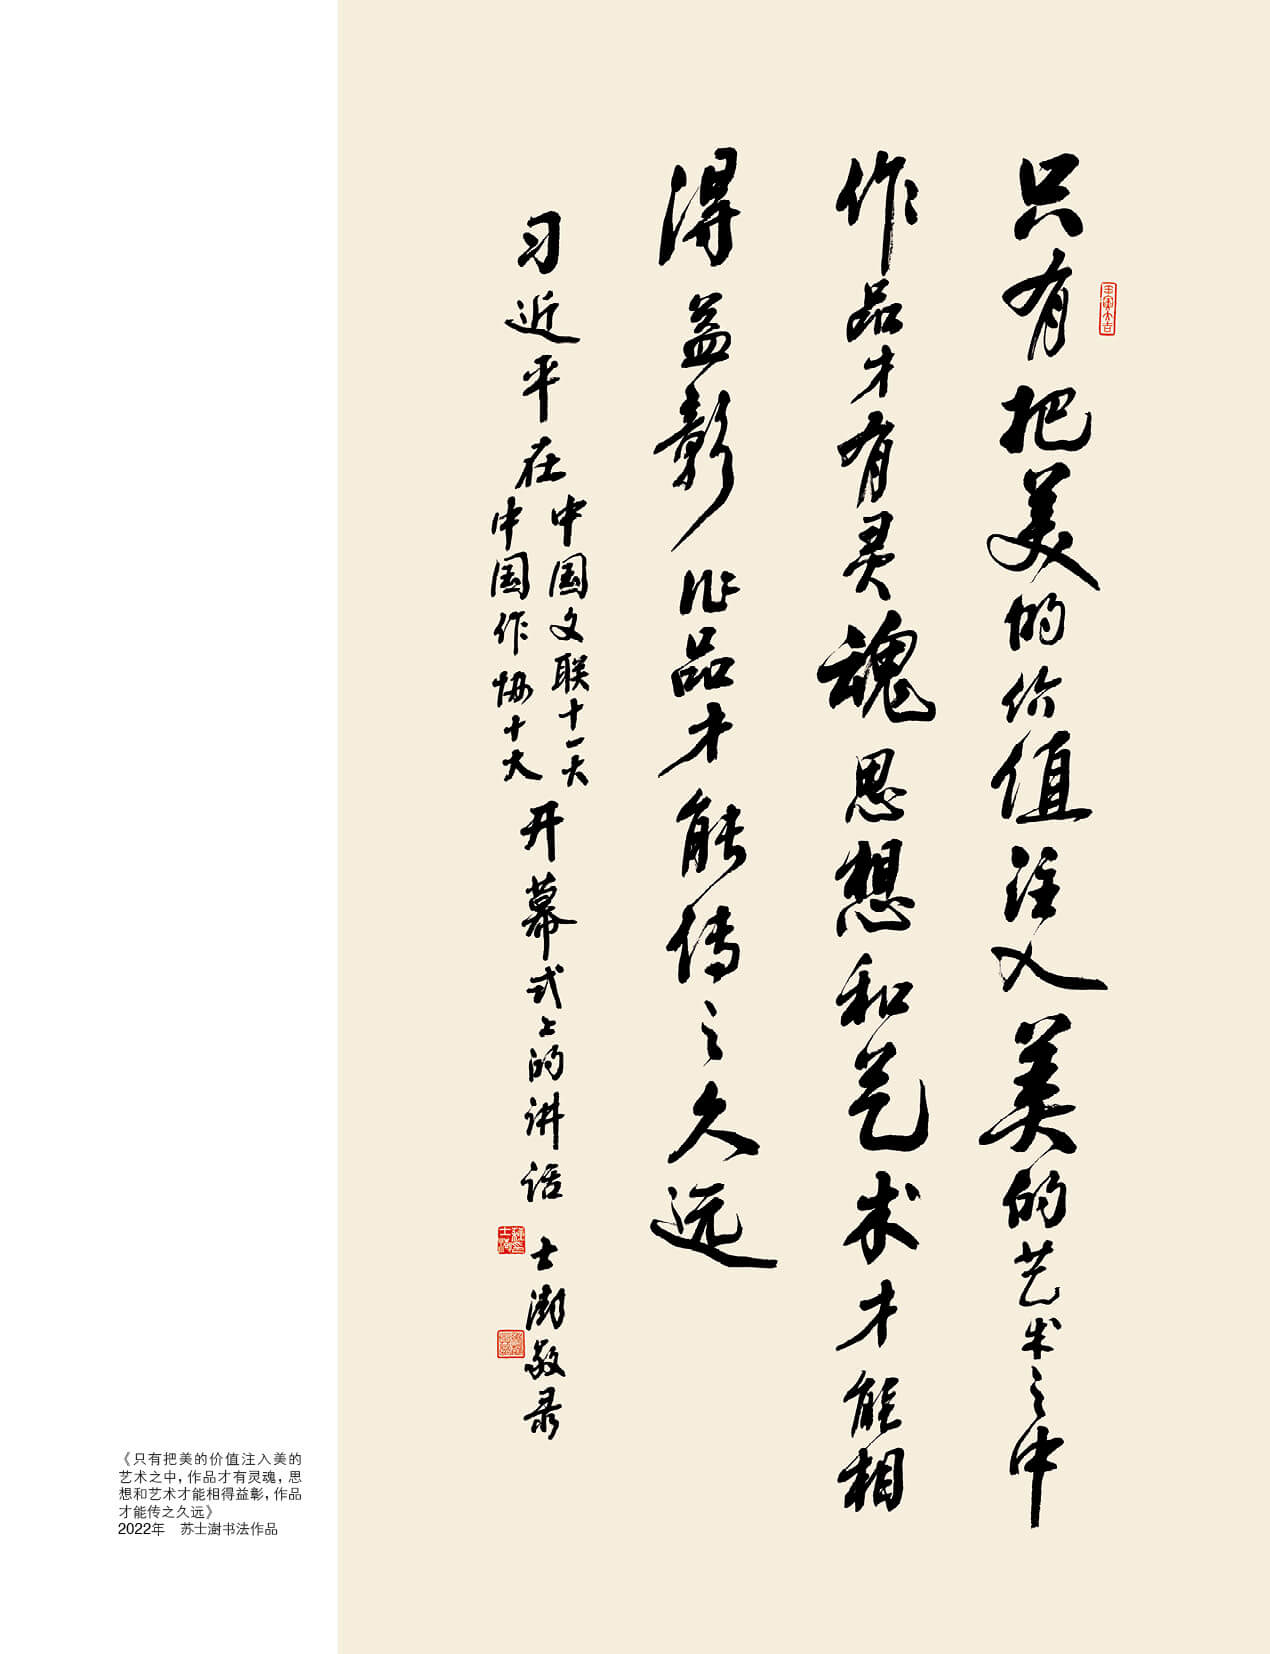 只有把美的价值注入美的艺术之中
作品才有灵魂思想和艺术才能相
得益彰作品才能传之久远
习近平在
中国文联十一大
中国作协十大
开幕式上的讲话 士澍敬录
《只有把美的价值注入美的
艺术之中，作品才有灵魂，思
想和艺术才能相得益彰，作品
才能传之久远》
2022年 苏士澍书法作品